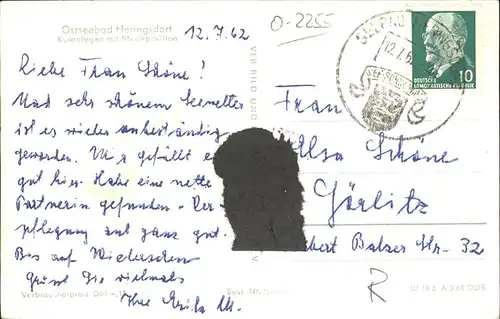 Ostseebad Heringsdorf
Kuranlagen mit Musikpavillon
12.7.62
O-2255
Liebe Frau Schöne!
Nach sehr schönem Seewetter
ist es wieder unbeständig
geworden. Mir gefällt es
gut hier. Habe eine nette
Partnerin gefunden. Ver-
pflegung auch ganz gut.
Bis auf Wiedersehen
Grüßt Sie vielmals
Ihre M.
Verbraucherpreis DM
Best.-Nr.
VEB BILD UND
12.7.62
DEUTSCHE
DEMOKRATISCHE REPUBLIK
10
Frau
Elsa Schöne
Görlitz
Balzer Str. 32
R
A 2 61 DDR